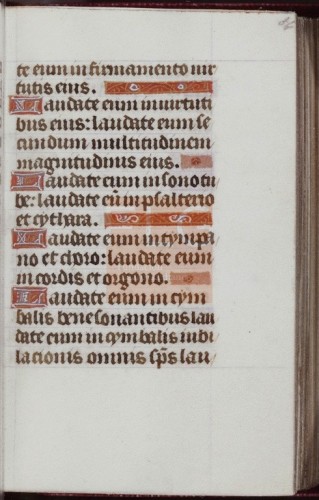 te eum in firmamento uir
tutis eius.
Laudate eum in uirtuti
bus eius: laudate eum se
cundum multitudinem
magnitudinis eius.
Laudate eum in sono tu
be: laudate eū in psalterio
et cythara.
Laudate eum in tympa
no et choro: laudate eum
in cordis et orgono.
Laudate eum in cym
balis bene sonantibus lau
date eum in cymbalis iubi
lacionis omnis sp̄s lau